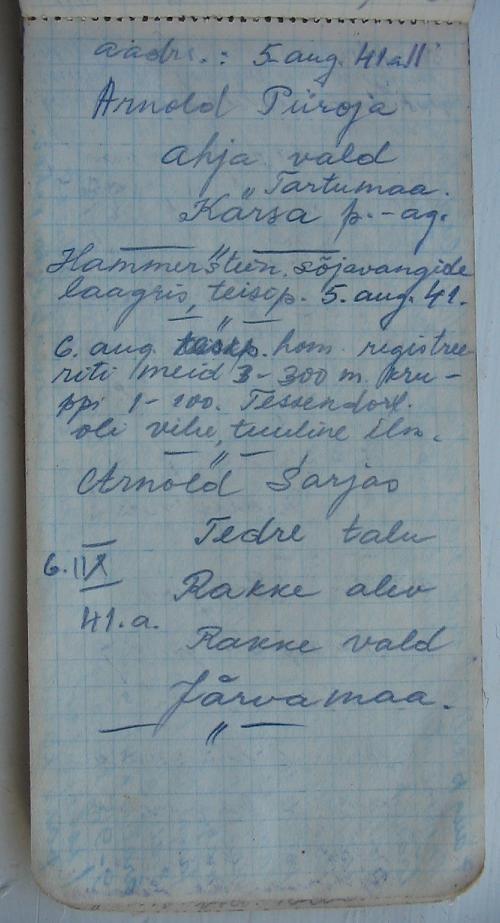 aadr.: 5. aug. 41.a
Arnold Püroja
Ahja vald
" Tartumaa.
Karsa p.-ag.
— " —
Hammerstein, sõjavangide
laagris, teisip. 5. aug. 41.
— " —
6. aug. hom. registree-
riti meid 3-300 m. kru-
ppi 1-100. Tessendorf.
oli vihe, tuuline ilm.
— " —
Arnold Sarjas
Tedre talu
6. IIX
Rakke alev
41. a.
Rakke vald
Järvamaa.
— " —